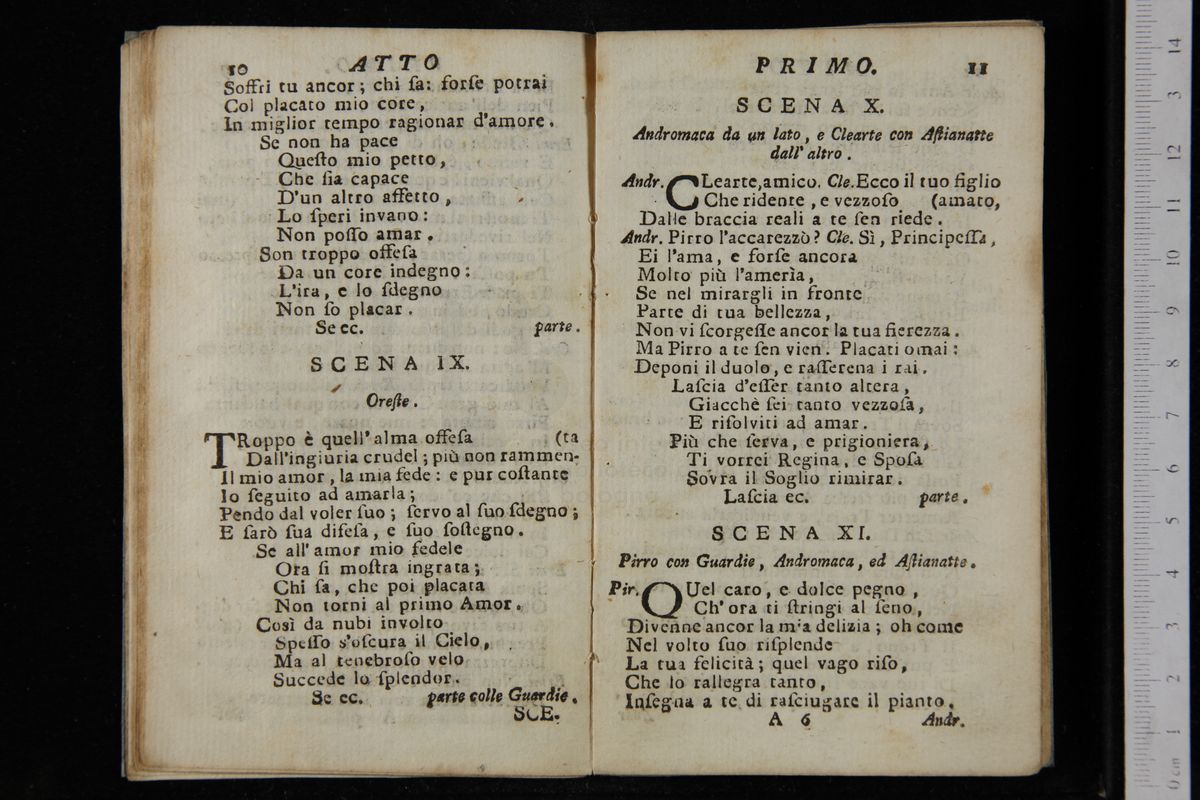 10 ATTO
Soffri tu ancor; chi ſa: forſe potrai
Col placato mio core,
In miglior tempo ragionar d'amore.
Se non ha pace
Queſto mio petto,
Che ſia capace
D'un altro affetto,
Lo ſperi invano:
Non poſſo amar.
Son troppo offeſa
Da un core indegno:
L'ira, e lo ſdegno
Non ſo placar.
Se ec. parte.
SCENA IX.
Oreſte.
TRoppo è quell' alma offeſa (ta
Dall'ingiuria crudel; più non rammen-
Il mio amor, la mia fede: e pur coſtante
Io ſeguito ad amarla;
Pendo dal voler ſuo; ſervo al ſuo ſdegno;
E ſarò ſua difeſa, e ſuo ſoſtegno.
Se all' amor mio fedele
Ora ſi moſtra ingrata;
Chi ſa, che poi placata
Non torni al primo Amor.
Così da nubi involto
Speſſo s'oſcura il Cielo,
Ma al tenebroſo velo
Succede lo ſplendor.
Se ec. parte colle Guardie.
SCE-
PRIMO. 11
SCENA X.
Andromaca da un lato, e Clearte con Aſtianatte
dall' altro.
Andr. CLearte, amico. Cle. Ecco il tuo figlio
Che ridente, e vezzoſo (amato,
Dalle braccia reali a te ſen riede.
Andr. Pirro l'accarezzò? Cle. Sì, Principeſſa,
Ei l'ama, e forſe ancora
Molto più l'amerìa,
Se nel mirargli in fronte
Parte di tua bellezza,
Non vi ſcorgeſſe ancor la tua fierezza.
Ma Pirro a te ſen vien. Placati omai:
Deponi il duolo, e raſſerena i rai.
Laſcia d'eſſer tanto altera,
Giacchè ſei tanto vezzoſa,
E riſolviti ad amar.
Più che ſerva, e prigioniera,
Ti vorrei Regina, e Spoſa
Sovra il Soglio rimirar.
Laſcia ec. parte.
SCENA XI.
Pirro con Guardie, Andromaca, ed Aſtianatte.
Pir. QUel caro, e dolce pegno,
Ch' ora ti ſtringi al ſeno,
Divenne ancor la mia delizia; oh come
Nel volto ſuo riſplende
La tua felicità; quel vago riſo,
Che lo rallegra tanto,
Inſegna a te di raſciugare il pianto.
A 6 Andr.
0 cm 1 2 3 4 5 6 7 8 9 10 11 12 3 14